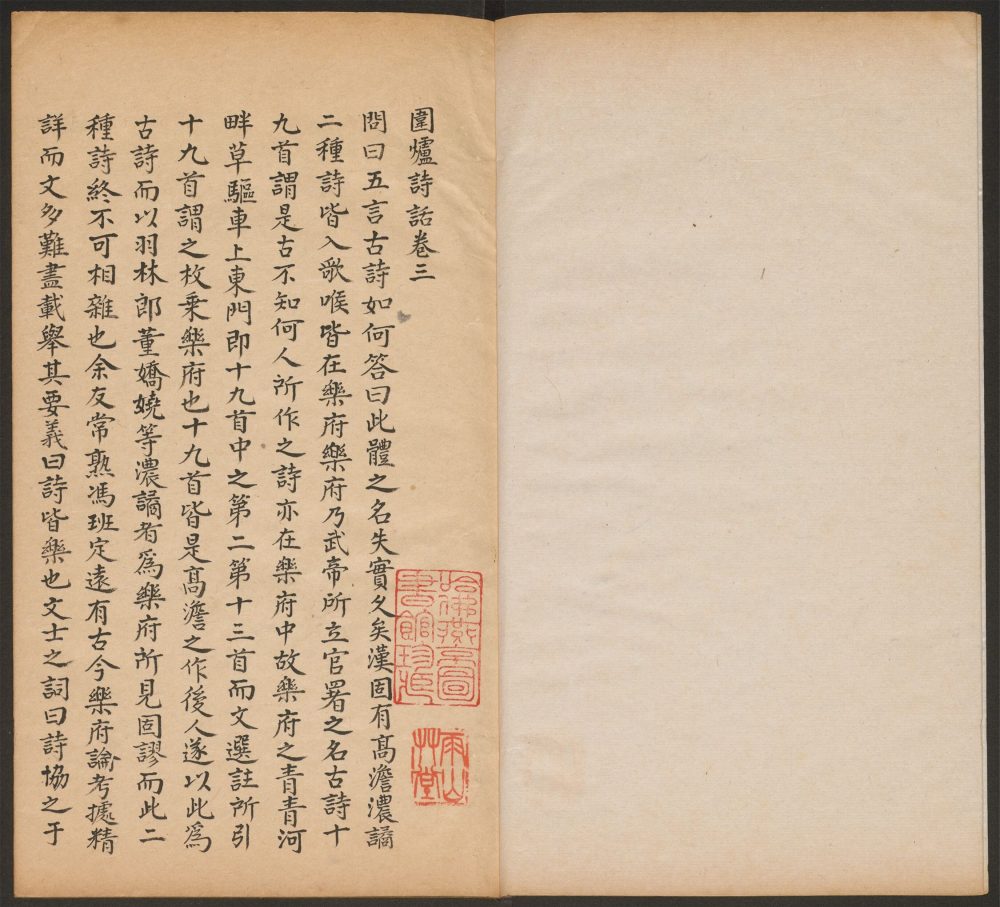 圍爐詩話卷三
問曰五言古詩如何答曰此體之名失實久矣漢固有高澹濃譎
二種詩皆入歌喉皆在樂府樂府乃武帝所立官署之名古詩十
九首謂是古不知何人所作之詩亦在樂府中故樂府之青青河
畔草驅車上東門即十九首中之第二第十三首而文選註所引
十九首謂之枚乘樂府也十九首皆是高澹之作後人遂以此爲
古詩而以羽林郎董嬌嬈等濃譎者爲樂府所見固謬而此二
種詩終不可相雜也余友常熟馮班定遠有古今樂府論考據精
詳而文多難盡載舉其要義曰詩皆樂也文士之詞曰詩協之于
哈佛燕京圖書館珍藏
雨山草堂